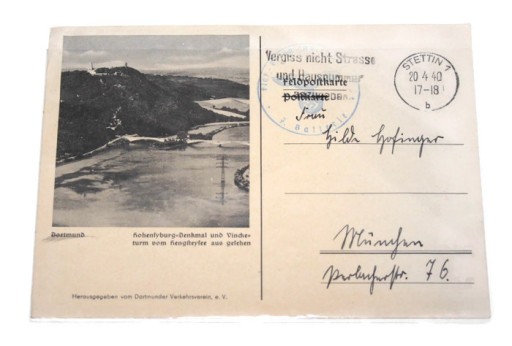 Dortmund
Hohensyburg-Denkmal und Vincke-
turm vom Hengsteysee aus gesehen
Herausgegeben vom Dortmunder Verkehrsverein, e. V.
Vergiss nicht Strasse
und Hausnummer
Feldpostkarte
Postkarte
STETTIN 1
20.4.40
17-18
b
Frau
Hilde Hofinger
München
Perlacherstr. 76.